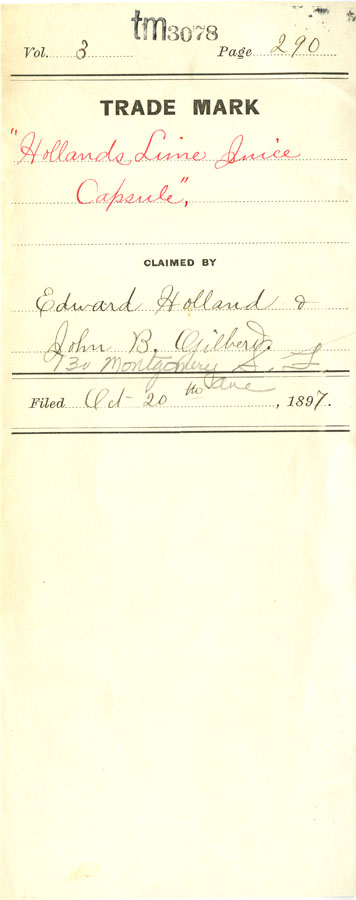 tm3078
Vol. 3 Page 290
TRADE MARK
"Hollands Lime Juice
Capsule",
CLAIMED BY
Edward Holland &
John B. Gilberd.
730 Montgomery S. F.
Filed Oct 20th, 1897.